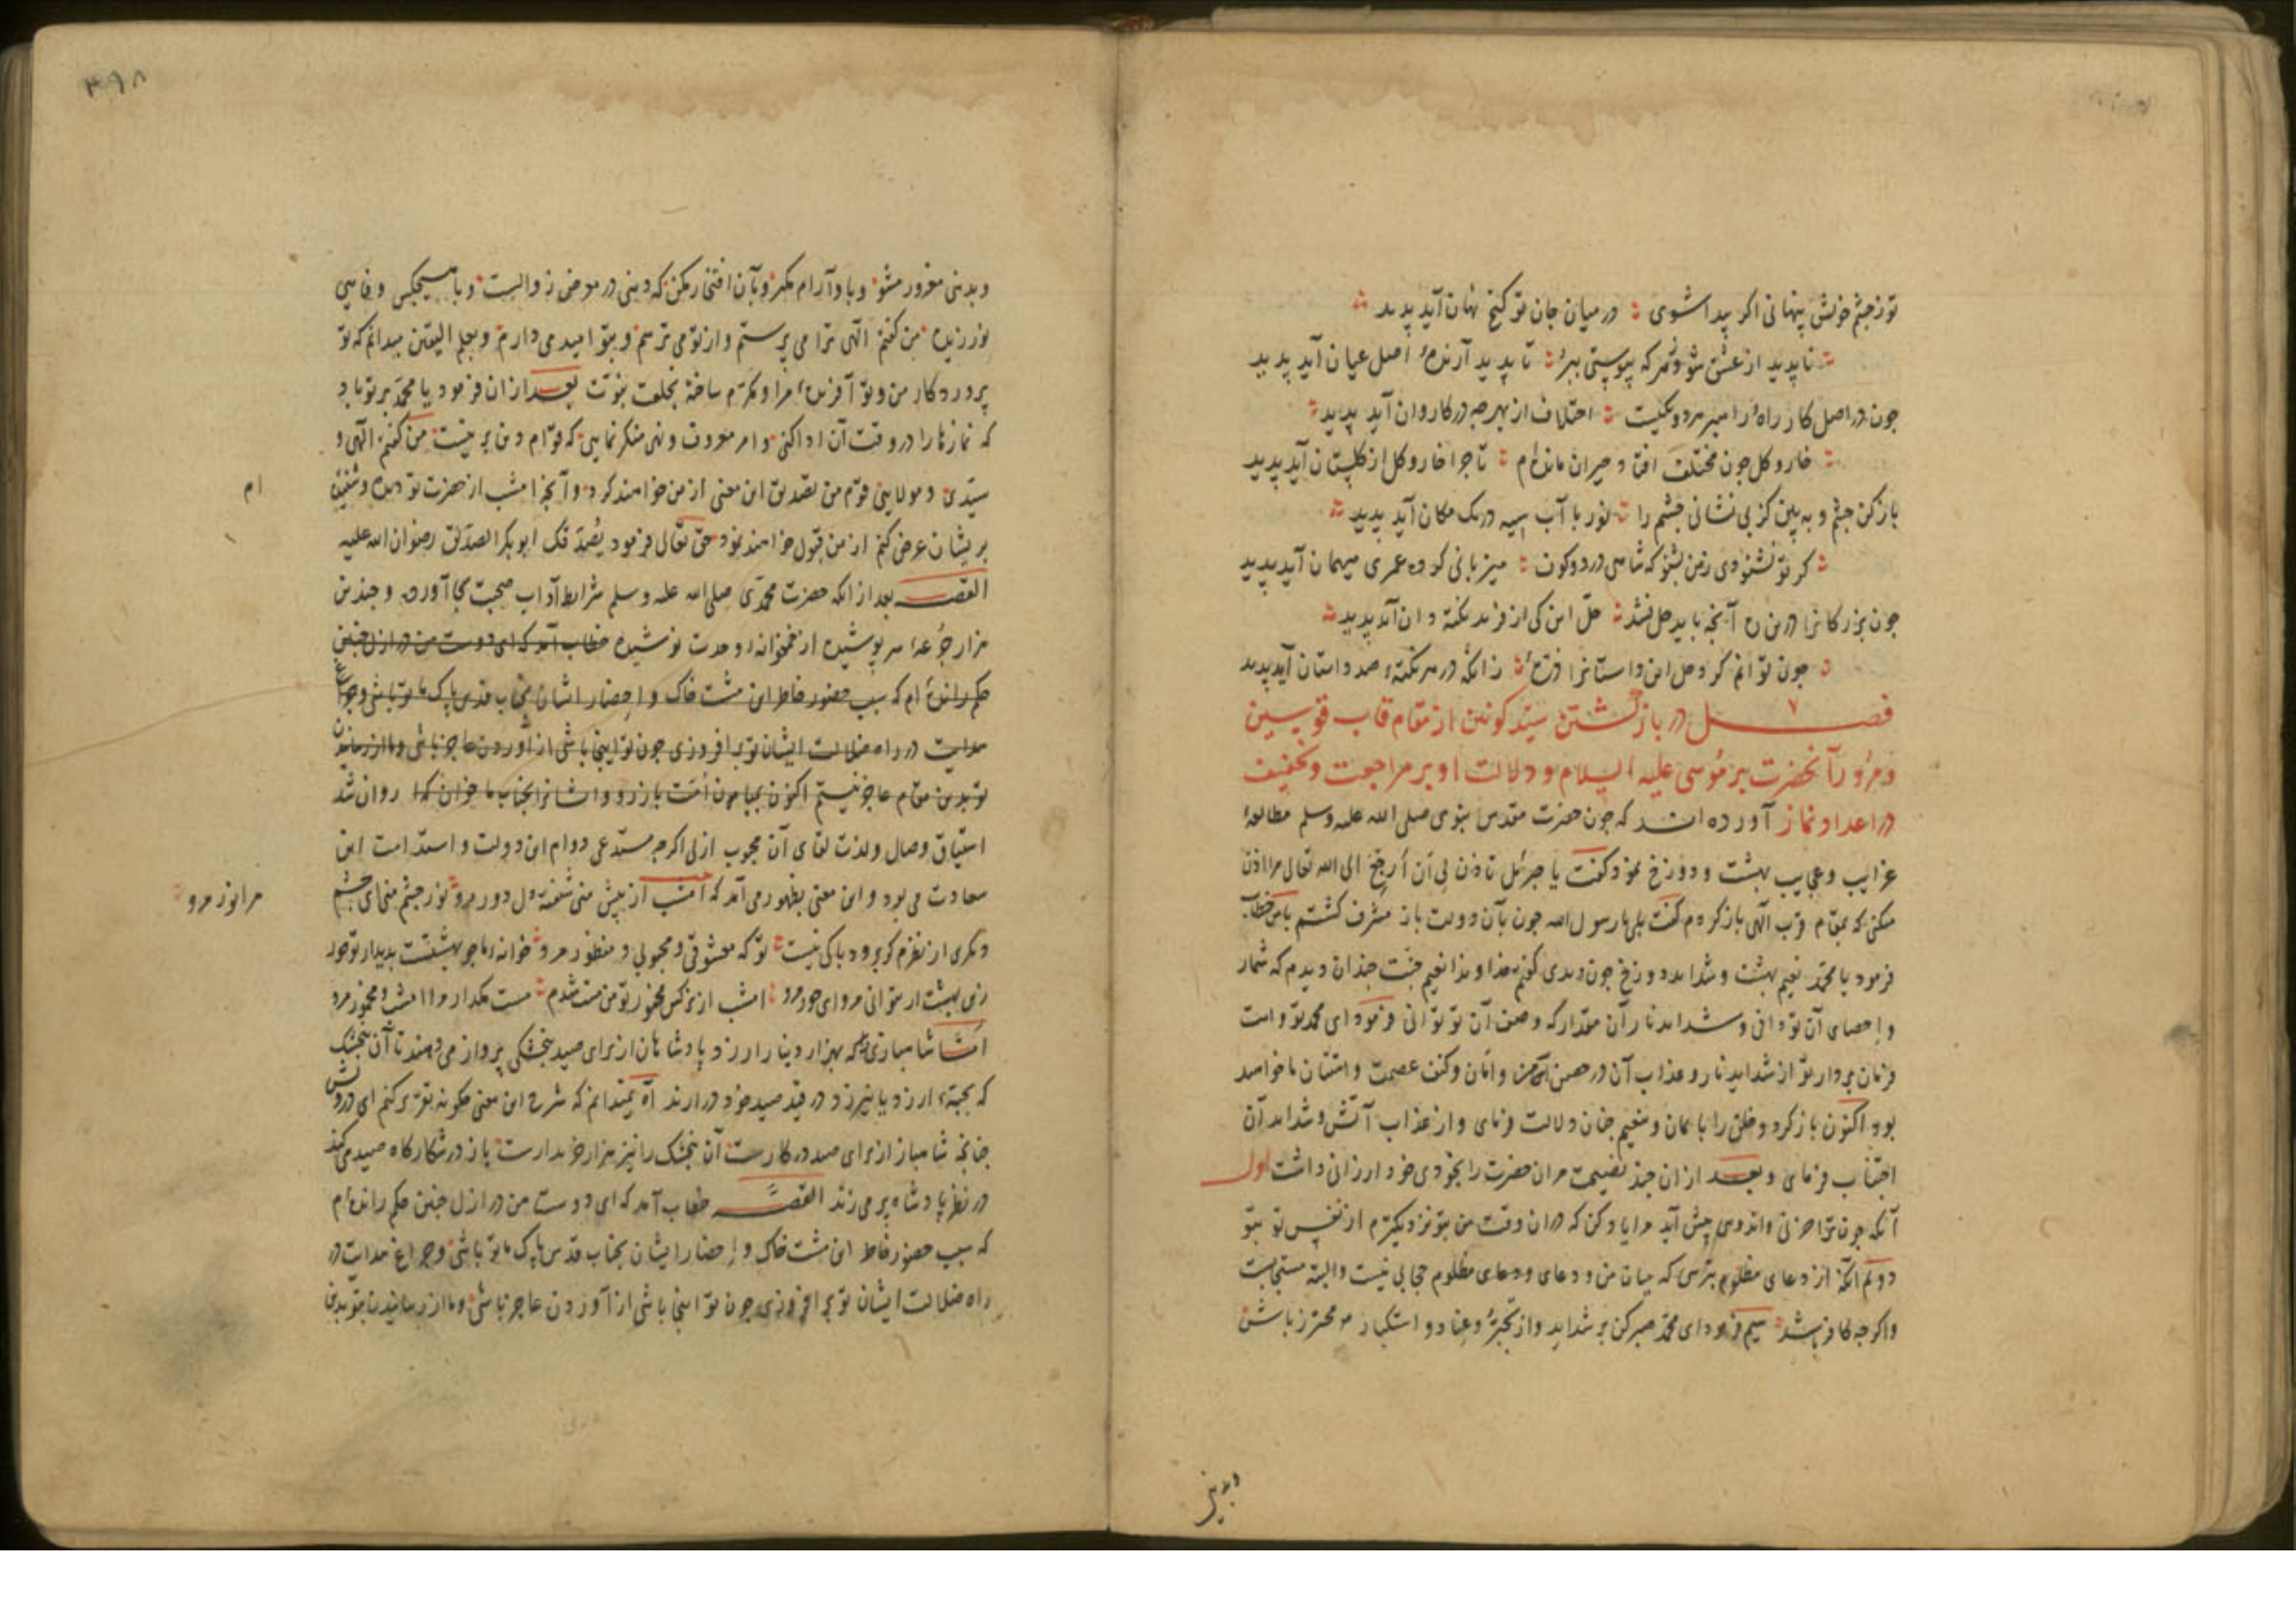 تو ز چشم خویش پنهانی اگر پیدا شوی در میان جان تو گنج نهان آید پدید
ناپدید از عشق شو هرکه پیوستی ببر تا پدید آرنده اصل عیان آید پدید
چون در اصل کار راه و راهبر هر دو یکیست اختلاف از بهر چه در کاروان آید پدید
خار و گل چون مختلف افتاد حیران مانده‌ام تا چرا خار و گل از گلستان آید پدید
باز کن چشم و ببین کز بی نشانی چشم را نور با آب سیه در یک مکان آید پدید
گر تو نشنودی ز من بشنو که شاهی در دو کون میزبانی کرده عمری میهمان آید پدید
چون بزرکانرا درین ره آنچه باید حل نشد حل این کی از فرید نکته دان آید پدید
چون توانم کرد حل این داستانرا زانکه در هر نکته صد داستان آید پدید
فصل در بازکشتن سید کونین از مقام قاب قوسین
و مرور آنحضرت بر موسی علیه السلام و دلالت او بر مراجعت و تخفیف
در اعداد نماز آورده اند که چون حضرت مقدس نبوی صلی الله علیه وسلم مطالعه
غرایب و عجایب بهشت و دوزخ نمود کفت یا جبرئیل تاذن لی ان ارجع الی الله تعالی مرا اذن
میکنی که بمقام قرب الهی باز کردم کفت بلی یا رسول الله چون بآن دولت باز مشرف کشتم بامن خطاب
فرمود یا محمد نعیم بهشت و شداید دوزخ چون دیدی کفتم خداوندا نعیم جنت چندان دیدم که شمار
و احصای آن تو دانی و شداید نار آن مقدار که وصف آن تو توانی فرمود ای محمد تو و امت
فرمان بردار تو از شداید نار و عذاب آن در حصن امن و امان و کنف عصمت و امتنان ما خواهید
بود اکنون باز کرد و خلق را بایمان و نعیم جنان دلالت فرمای و از عذاب آتش و شداید آن
اجتناب فرمای و بعد از ان چند نصیحت مران حضرت را بخودی خود ارزانی داشت اول
آنکه چون ترا حزنی و اندوهی پیش آید مرا یاد کن که در ان وقت من بتو نزدیکترم از نفس تو بتو
دوم آنکه از دعای مظلوم بترسی که میان من و دعای مظلوم حجابی نیست و البته مستجابست
و اکرچه کافر باشد سیم فرمود ای محمد صبر کن بر شداید و از تجبر و عناد و استکبار محترز باش
وبدنیی
۳۹۸
و بدنیی مغرور مشو و با او آرام مکیر و بآن افتخار مکن که دنیی در معرض زوالست و با هیچکس وفایی
نورزیده من کفتم الهی ترا می پرستم و از تو می ترسم و بتو امید می دارم و بعلم الیقین میدانم که تو
پروردکار من و تو آفریننده مرا و مکرم ساخته بخلعت نبوت بعد از ان فرمود یا محمد بر تو باد
که نمازها را در وقت آن ادا کنی و امر معروف و نهی منکر نمایی که قوام دین بر نیست من کفتم الهی و
سیدی و مولایی قوم من تصدیق این معنی از من خواهند کرد و آنچه امشب از حضرت تو دیده و شنیده
ام
بریشان عرض کنم از من قبول خواهند نمود حق تعالی فرمود یصدقک ابوبکر الصدیق رضوان الله علیه
القصه بعد از آنکه حضرت محمدی صلی الله علیه وسلم شرایط آداب صحبت بجا آورد و چندین
هزار جرعه سرپوشیده از خمخانه وحدت نوشیده خطاب آمد که ای دوست من در ازل چنین
حکم رانده ام که سبب حضور خاطر این مشت خاک و احضار ایشان بجناب قدس پاک ما تو باشی و چراغ
هدایت در راه ضلالت ایشان تو برافروزی چون تو اینجا باشی از آوردن عاجز باشی و ما از رسانیدن
تو بدین مقام عاجز نیستیم اکنون بمیان امت باز رو و ایشانرا بجناب ما خوان روان شد
اشتیاق وصال ولذت لقای آن محبوب ازلی اکرچه مستدعی دوام این دولت و استدامت این
سعادت می بود و این معنی بظهور می آمد که امشب از پیش من شیفته دل دور مرو نور چشم منی ای چشم
مرا نور مرو
دیکری از نظرم کر برود باکی نیست تو که معشوقی و محبوبی و منظور مرو خانه ما چو بهشتست بدیدار تو حور
زین بهشت ار بتوانی مرو ای حور مرو امشب از نرکس مخمور تو من مست شدم مست مکذار مرا امشب و مخمور مرو
شاهبازی که بهزار دینار ارزد پادشاهان از برای صید بنجشکی پرواز می دهند تا آن بنجشک
که بحبه ارزد یا نیرزد در قید صید خود درآرند آه نمیدانم که شرح این معنی چکونه تقریر کنم ای درویش
چنانچه شاهباز از برای صید در کارست آن بنجشک را نیز هزار خریدارست باز در شکارکاه صید می کند
در نظر پادشاه پر می زند القصه خطاب آمد که ای دوست من در ازل چنین حکم رانده ام
که سبب حضور خاطر این مشت خاک و احضار ایشان بجناب قدس پاک ما تو باشی و چراغ هدایت در
راه ضلالت ایشان تو برافروزی چون تو اینجا باشی از آوردن عاجز باشی و ما از رسانیدن تو بدین